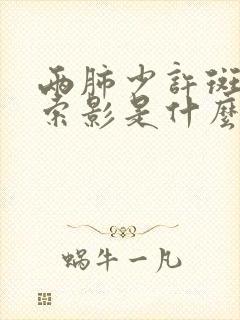 两肺少許斑
索影是什麼
蜗牛一凡